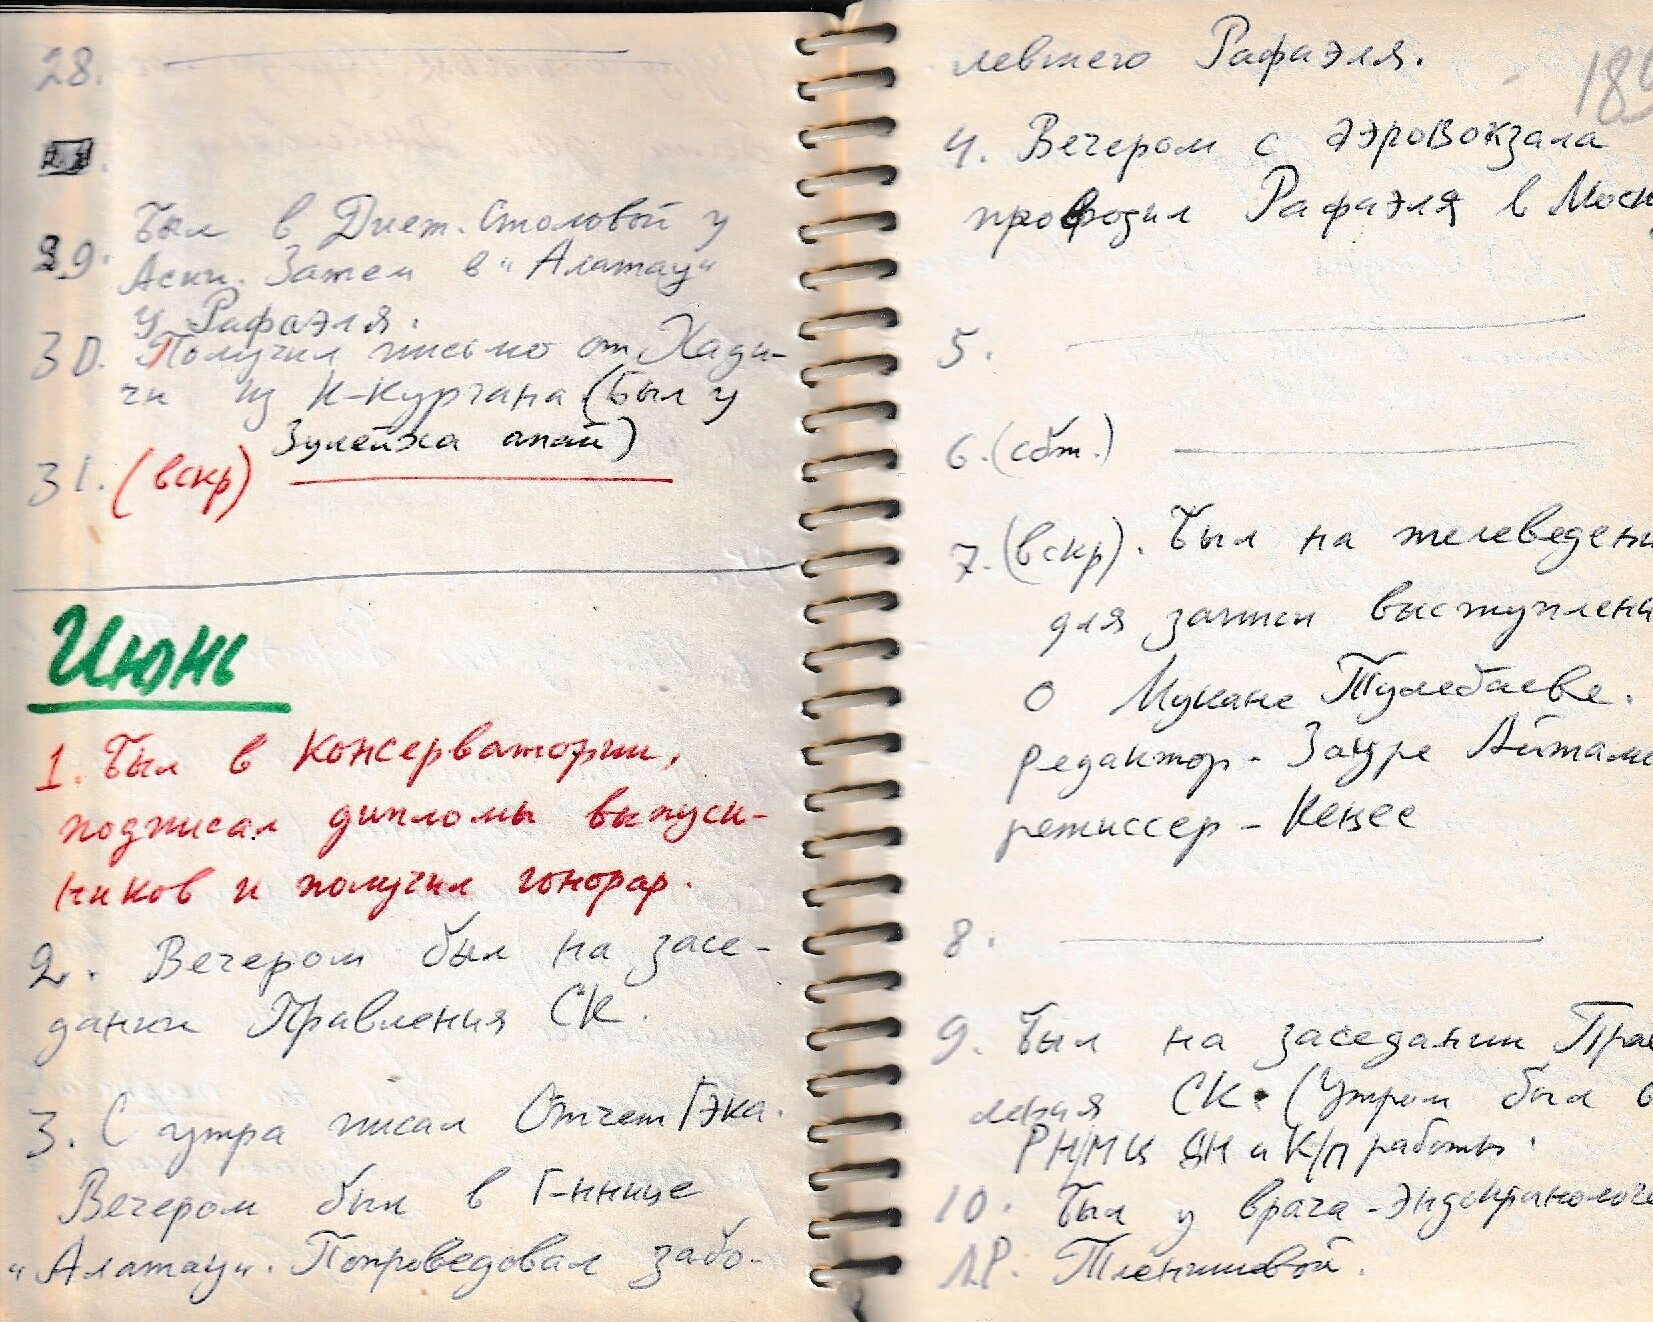 28.
29. Был в Диет. Столовой у
Аски. Затем в "Алатау"
у Рафаэля.
30. Получил письмо от Хади-
чи из К-Кургана (Был у
Зулейха апай)
31. (вскр)
Июнь
1. Был в Консерватории,
подписал дипломы выпуск-
ников и получил гонорар.
2. Вечером был на засе-
дании Правления СК.
3. С утра писал Отчет ГЭКа.
Вечером был в Г-ннице
"Алатау". Попроведовал забо-
левшего Рафаэля.
4. Вечером с аэровокзала
проводил Рафаэля в Моск
5.
6. (сбт.)
7. (вскр). Был на телеведени
для записи выступлени
о Мукане Тулебаеве.
редактор - Зауре Айтам
режиссер - Кеңес
8.
9. Был на заседании Прав
ления СК. (Утром был в
РН/МЦ и К/п работы.
10. Был у врача - эндокринолога
Тленшиевой.